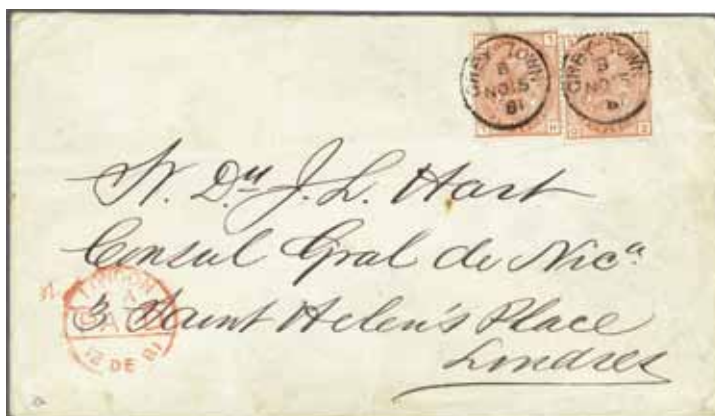 GREY TOWN
B
NO 15
81
GREY TOWN
B
NO 15
81
Sr. Dn. J. L. Hart
Consul Gral de Nica
3 Saint Helen's Place
Londres
LONDON
X
PAID
12 DE 81